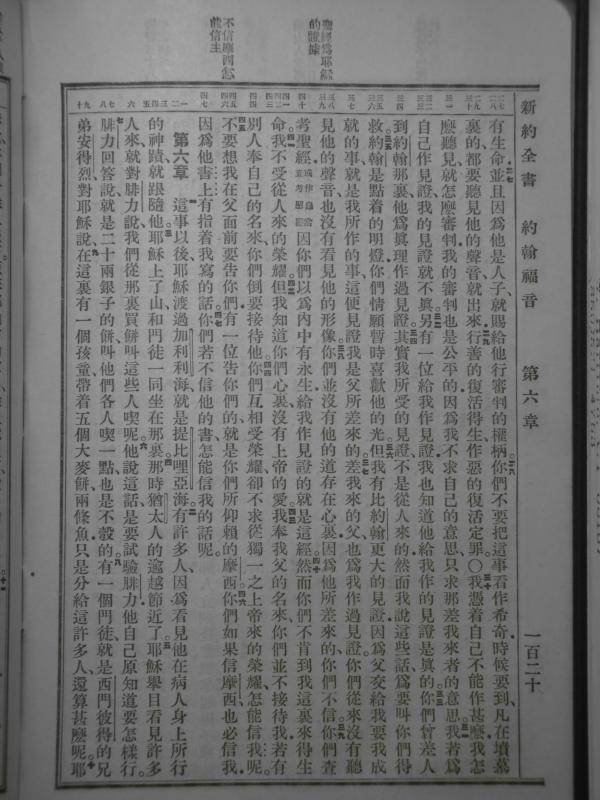 新約全書　約翰福音　第六章　一百二十
聖經爲耶穌的證據
不信摩西怎能信主
有生命並且因爲他是人子就賜給他行審判的權柄你們不要把這事看作希奇時候要到凡在墳墓
裏的都要聽見他的聲音就出來行善的復活得生作惡的復活定罪〇我憑着自己不能作甚麼我怎
麼聽見就怎麼審判我的審判也是公平的因爲我不求自己的意思只求那差我來者的意思我若爲
自己作見證我的見證就不眞另有一位給我作見證我也知道他給我作的見證是眞的你們曾差人
到約翰那裏他爲眞理作過見證其實我所受的見證不是從人來的然而我說這些話爲要叫你們得
救約翰是點着的明燈你們情願暫時喜歡他的光但我有比約翰更大的見證因爲父交給我要我成
就的事就是我所作的事這便見證我是父所差來的差我來的父也爲我作過見證你們從來沒有聽
見他的聲音也沒有看見他的形像你們並沒有他的道存在心裏因爲他所差來的你們不信你們查
考聖經或作應當查考聖經因你們以爲內中有永生給我作見證的就是這經然而你們不肯到我這裏來得生
命我不受從人來的榮耀但我知道你們心裏沒有上帝的愛我奉我父的名來你們並不接待我若有
別人奉自己的名來你們倒要接待他你們互相受榮耀卻不求從獨一之上帝來的榮耀怎能信我呢
不要想我在父面前要告你們有一位告你們的就是你們所仰賴的摩西你們如果信摩西也必信我
因爲他書上有指着我寫的話你們若不信他的書怎能信我的話呢
第六章　這事以後耶穌渡過加利利海就是提比哩亞海有許多人因爲看見他在病人身上所行
的神蹟就跟隨他耶穌上了山和門徒一同坐在那裏那時猶太人的逾越節近了耶穌舉目看見許多
人來就對腓力說我們從那裏買餅叫這些人喫呢他說這話是要試驗腓力他自己原知道要怎樣行
腓力回答說就是二十兩銀子的餅叫他們各人喫一點也是不彀的有一個門徒就是西門彼得的兄
弟安得烈對耶穌說在這裏有一個孩童帶着五個大麥餅兩條魚只是分給這許多人還算甚麼呢耶